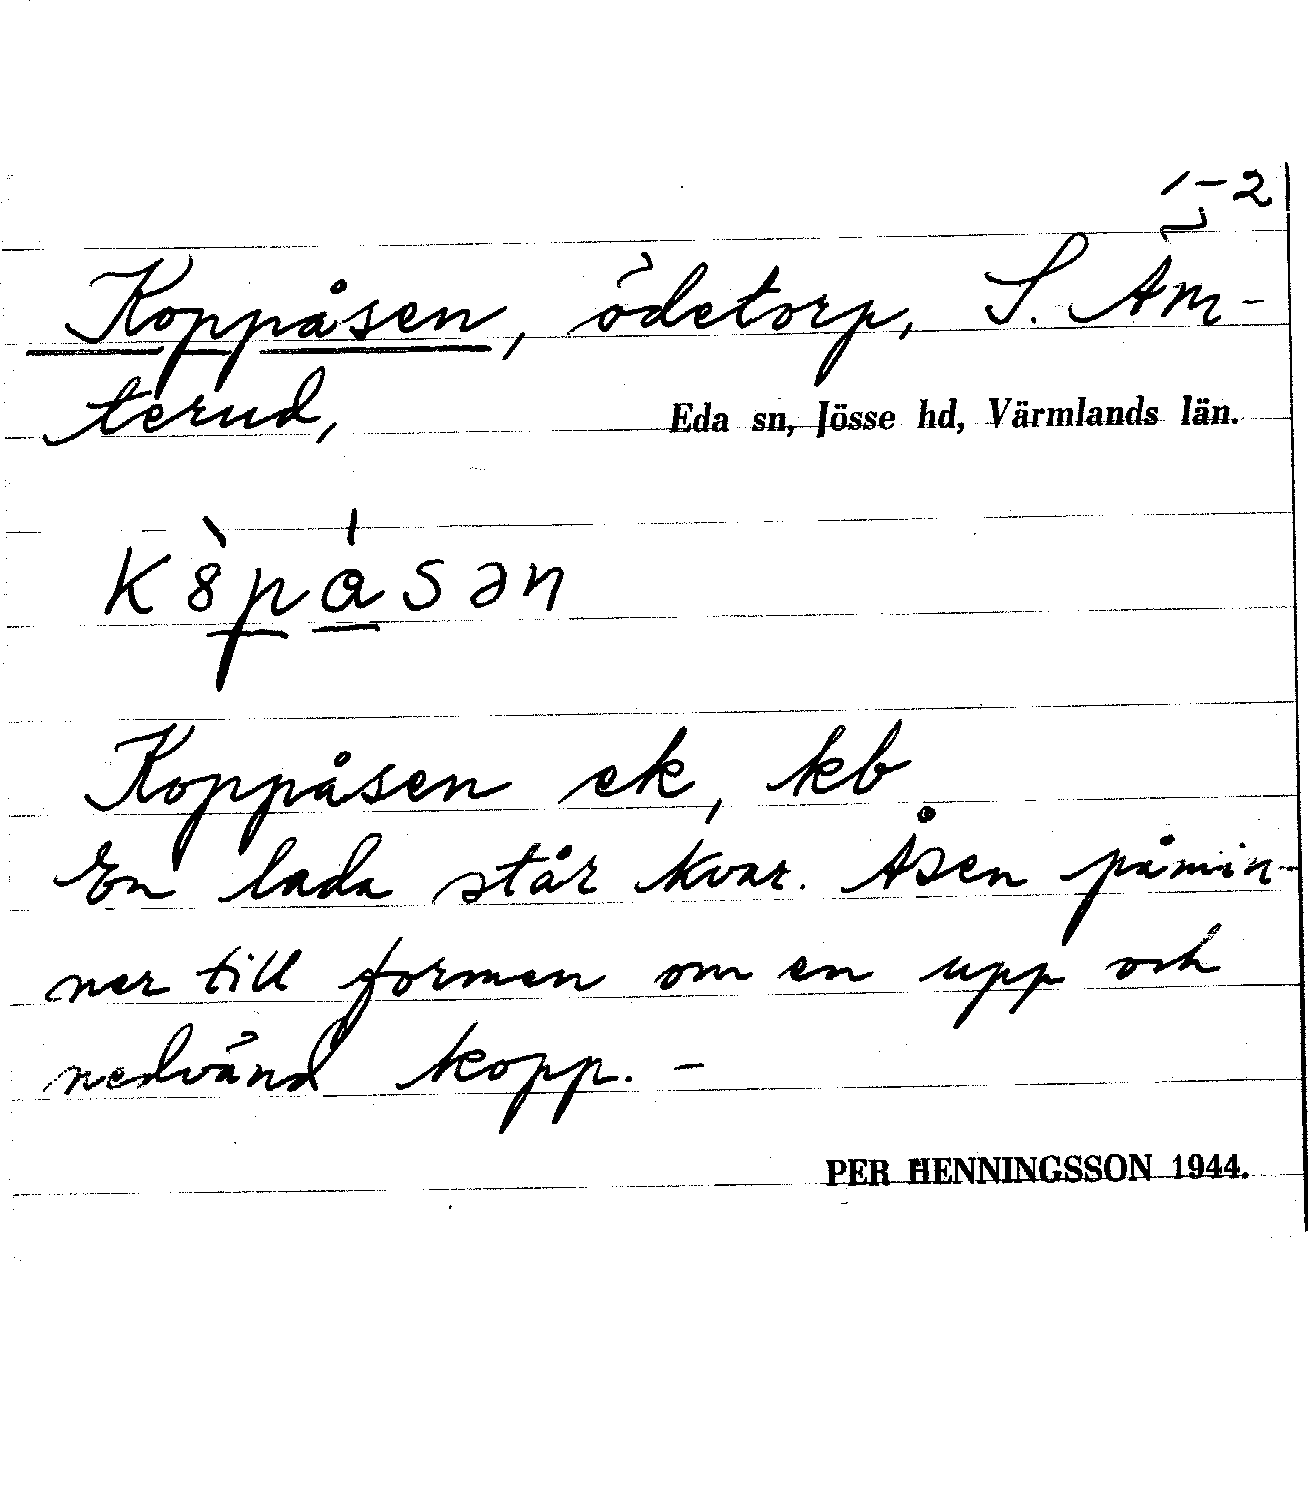 1-2
Koppåsen, ödetorp, S. Äm-
terud,
Eda sn, Jösse hd, Värmlands län.
Koppåsen ek, kb
En lada står kvar. Åsen påmin-
ner till formen om en upp och
nedvänd kopp. –
PER HENNINGSSON 1944.